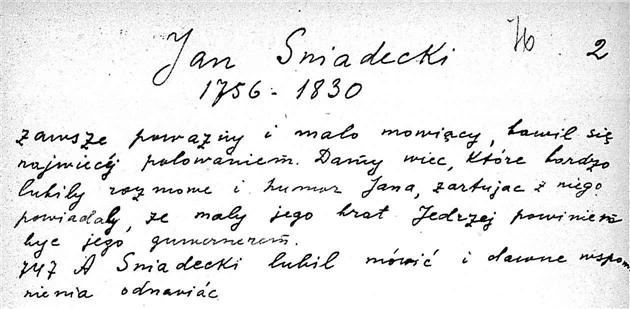 Jan Sniadecki 2
1756 - 1830
zawsze poważny i malo mowiący, bawil się
najwięcéj polowaniem. Damy wiec, które bardzo
lubily rozmowe i humor Jana, zartujac z niego
powiadaly, ze maly jego brat Jedrzej powinien
byc jego guwernerem.
747 A Sniadecki lubil mówić i dawne wspom
nienia odnawiác